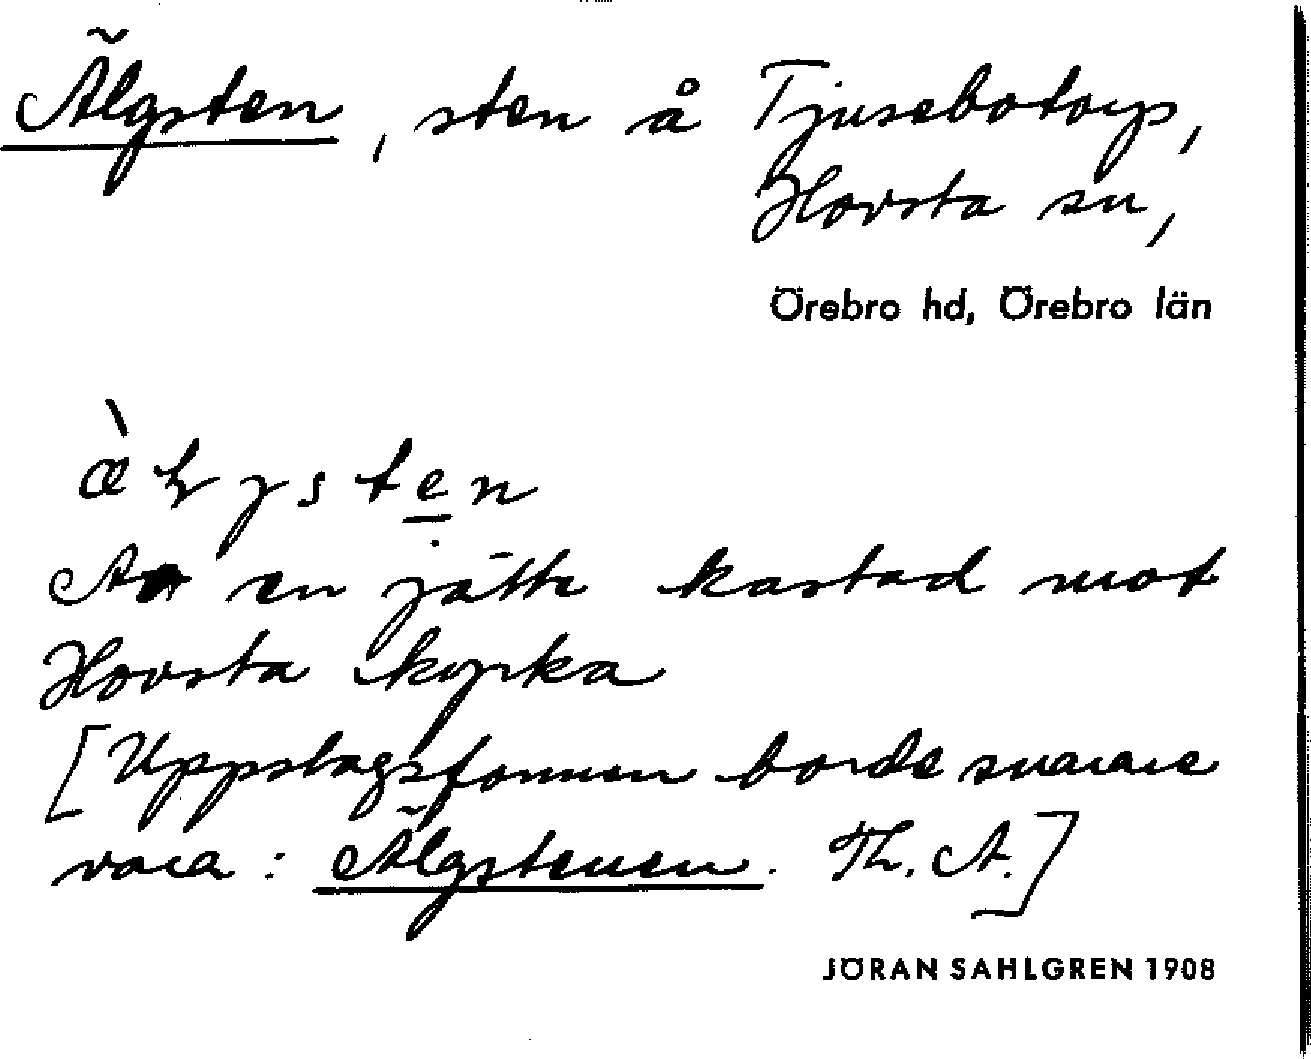 Älgsten, sten å Tjusebotorp,
Hovsta sn,
Örebro hd, Örebro län
Av en jätte kastad mot
Hovsta kyrka
[Uppslagsformen borde snarare
vara: Älgstenen. Th. A.]
JÖRAN SAHLGREN 1908